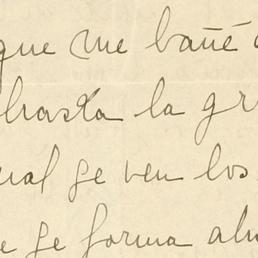 que me bañé
hasta la gr
ual se ven los
e se forma alr